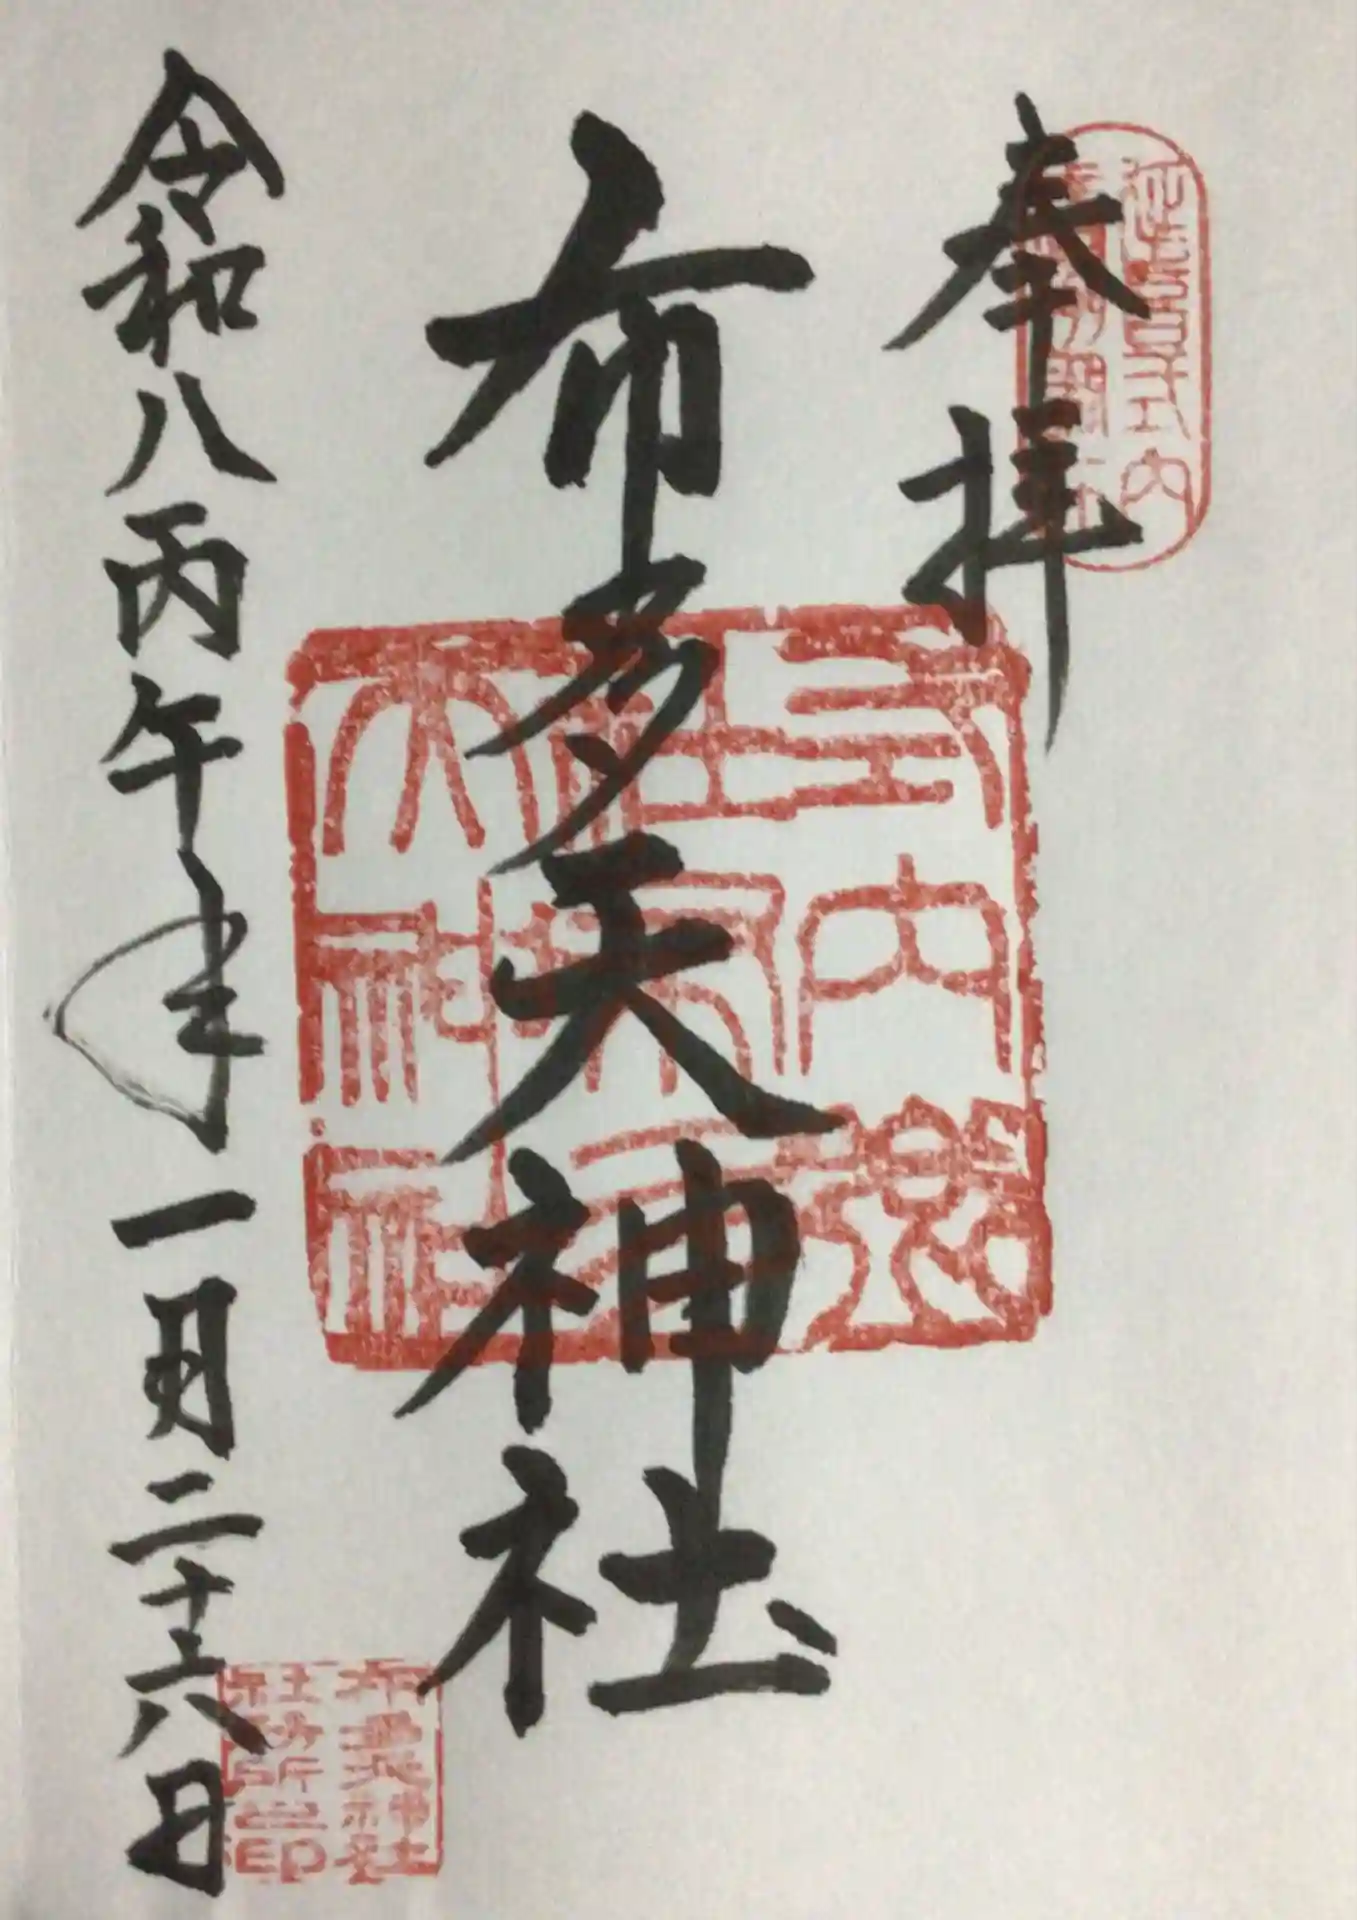 奉拝
延喜式内
布多天神社
式内郷
社布多
天神社
令和八丙午年一月二十六日
布多天神社
社務所之印